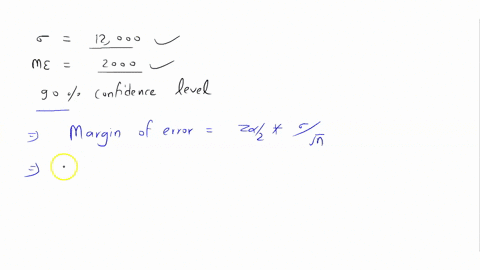 σ = 12,000 ✓
ME = 2000 ✓
90 % confidence level
⇒ Margin of error = Zα/2 * σ/√n
⇒ .